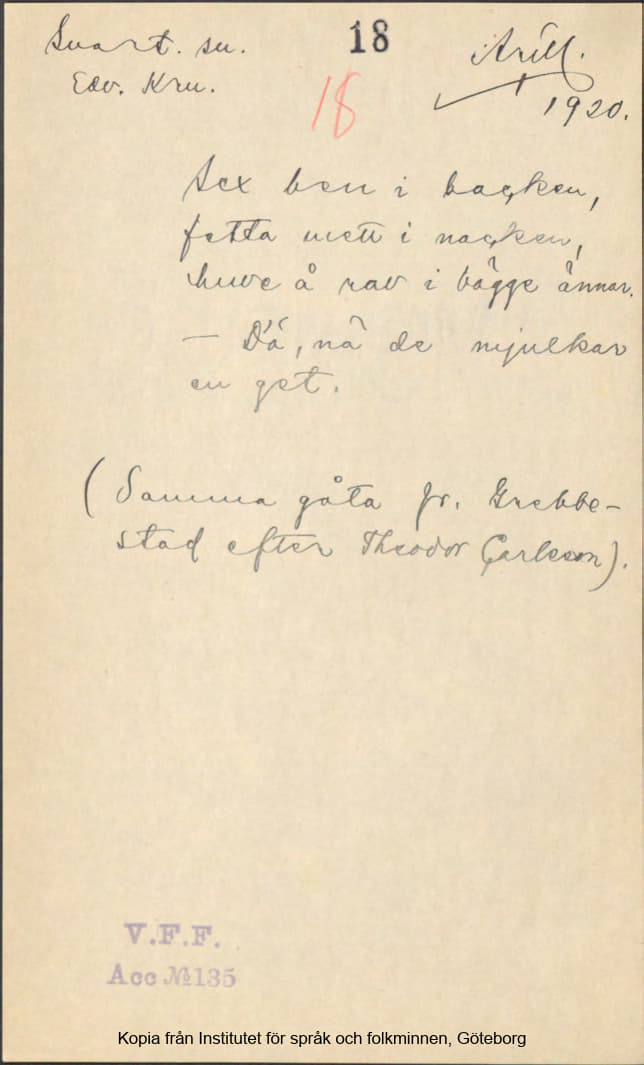 Svart. sn. 18 Arill.
Edv. Kru. 18 1920.
Sex ben i backen,
fetta mett i nacken,
huve å rav i bägge ännar.
— Dä, nä de mjulkar
en get.
(Samma gåta fr. Grebbe-
stad efter Theodor Carlsson).
V.F.F.
Acc №135
Kopia från Institutet för språk och folkminnen, Göteborg